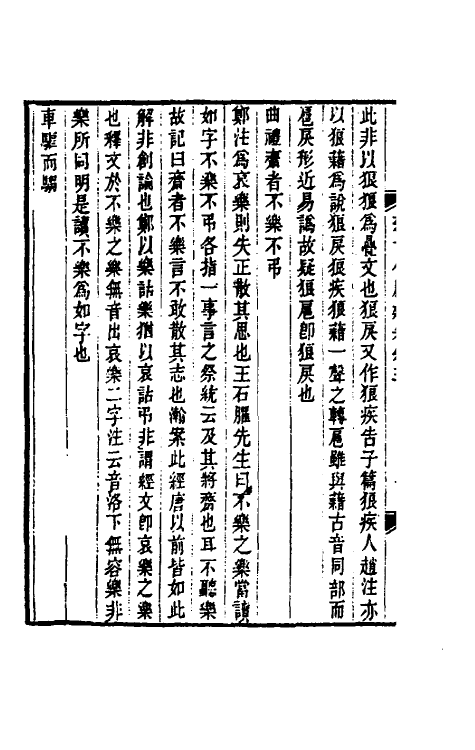 此非以狠狠爲疊文也狠戾又作狠疾告子篇狠疾人趙注亦
以狠藉爲說狠戾狠疾狠藉一聲之轉扈雖與藉古音同部而
扈戾形近易譌故疑狠扈卽狠戾也
曲禮齋者不樂不弔
鄭注爲哀樂則失正散其思也王石臞先生曰不樂之樂當讀
如字不樂不弔各指一事言之祭統云及其將齋也耳不聽樂
故記曰齋者不樂言不敢散其志也瀚案此經唐以前皆如此
解非創論也鄭以樂詁樂猶以哀詁弔非謂經文卽哀樂之樂
也釋文於不樂之樂無音出哀樂二字注云音洛下無容樂非
樂所同明是讀不樂爲如字也
車驅而騶